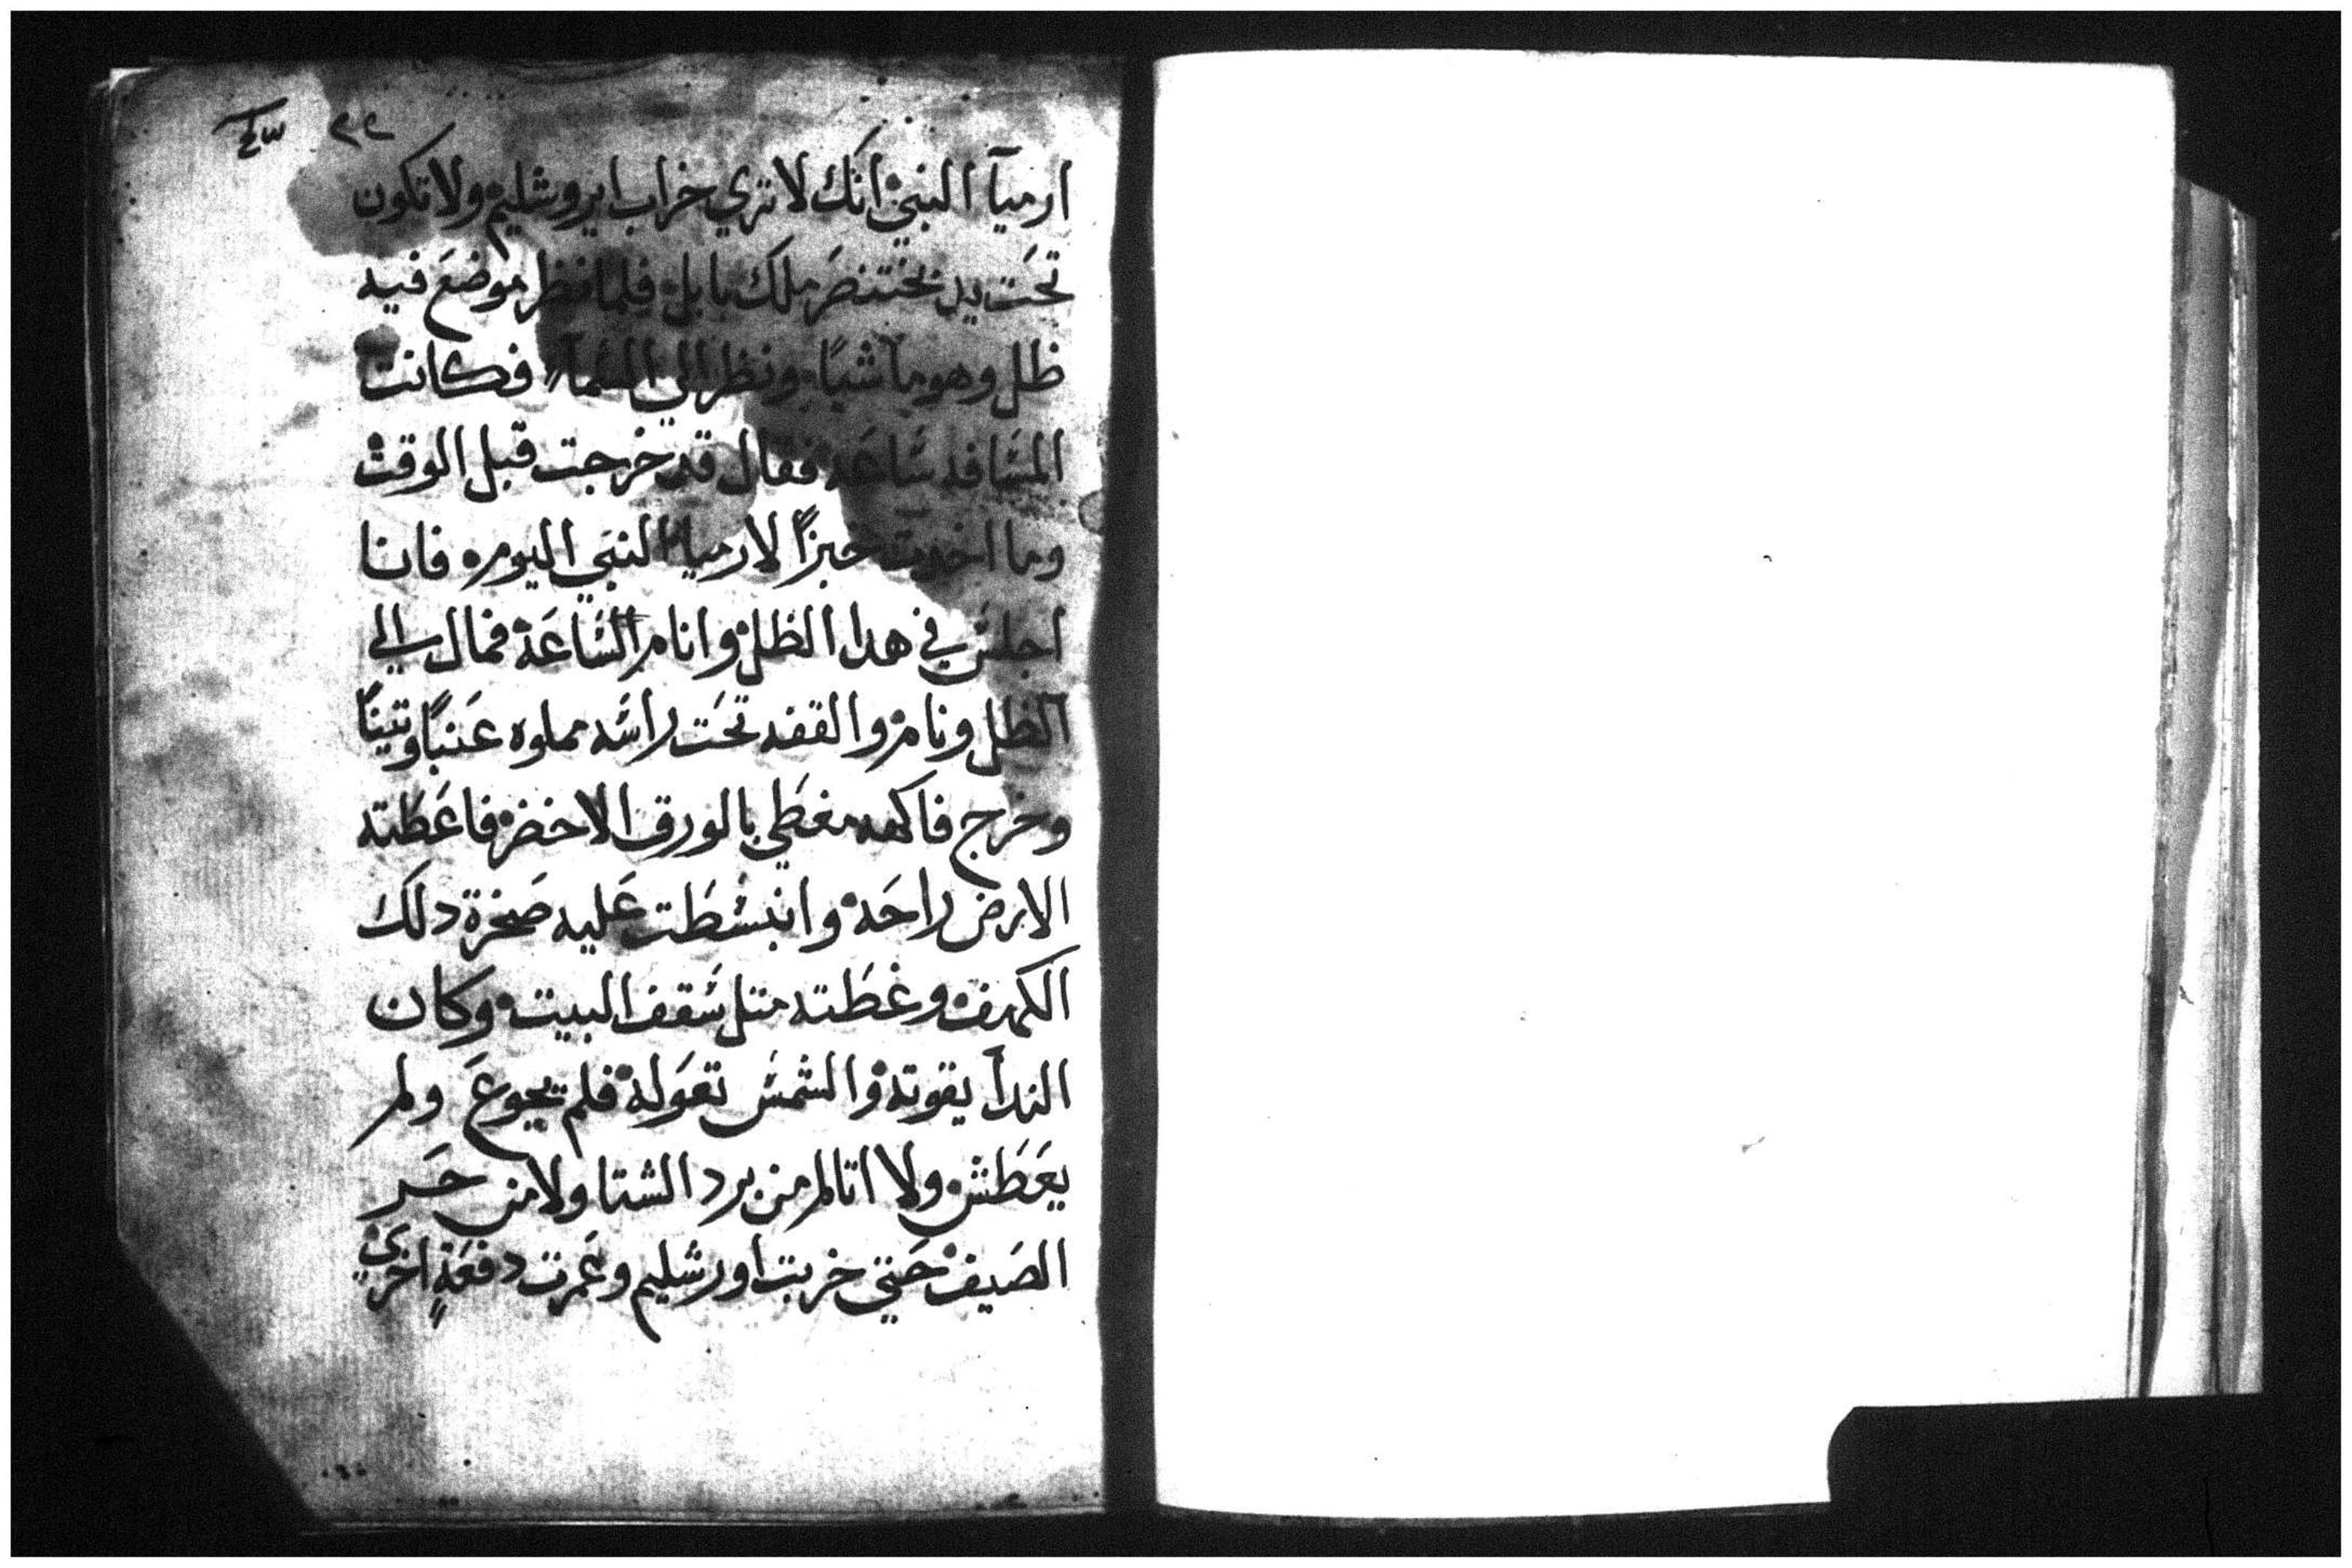 ٢٤
ارميآ النبي انك لا تري خراب ايروشليم ولا تكون
تحَت يد بختنصَر ملك بابل فلما نظر موضعَ فيه
ظل وهو ماشيًا ونظر الي السمآء فكانت
المسَافه سَاعَه فقال قد خرجت قبل الوقت
وما اخدت خبزًا لارميا النبَي اليوم فانا
اجلسَ في هدا الظل وانام السَاعَة فمال الي
الظل ونام والقفه تحَت راسَه مملوه عَنبًا وتينًا
وخرج فاكهه مغطي بالورق الاخضر فاعَطَته
الارض راحَه وانبسَطَت عَليه صَخرة دلك
الكهف وغطَته متل سَقف البيت وكان
الندآ يقوته والشمسَ تعَوله فلم يجوعَ ولم
يعَطَش ولا اتالم من برد الشتا ولا من حَر
الصَيف حَتي خربت اورشليم وعَمرت دفعَةٍ اخري